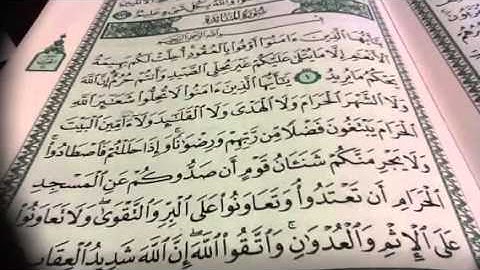 سُورَةُ المَائِدَةِ
بِسْمِ ٱللَّهِ ٱلرَّحْمَٰنِ ٱلرَّحِيمِ
يَٰٓأَيُّهَا ٱلَّذِينَ ءَامَنُوٓا۟ أَوْفُوا۟ بِٱلْعُقُودِ أُحِلَّتْ لَكُم بَهِيمَةُ
ٱلْأَنْعَٰمِ إِلَّا مَا يُتْلَىٰ عَلَيْكُمْ غَيْرَ مُحِلِّى ٱلصَّيْدِ وَأَنتُمْ حُرُمٌ إِنَّ ٱللَّهَ
يَحْكُمُ مَا يُرِيدُ ١ يَٰٓأَيُّهَا ٱلَّذِينَ ءَامَنُوا۟ لَا تُحِلُّوا۟ شَعَٰٓئِرَ ٱللَّهِ
وَلَا ٱلشَّهْرَ ٱلْحَرَامَ وَلَا ٱلْهَدْىَ وَلَا ٱلْقَلَٰٓئِدَ وَلَآ ءَآمِّينَ ٱلْبَيْتَ
ٱلْحَرَامَ يَبْتَغُونَ فَضْلًا مِّن رَّبِّهِمْ وَرِضْوَٰنًا ۚ وَإِذَا حَلَلْتُمْ فَٱصْطَادُوا۟ ۚ
وَلَا يَجْرِمَنَّكُمْ شَنَـَٔانُ قَوْمٍ أَن صَدُّوكُمْ عَنِ ٱلْمَسْجِدِ
ٱلْحَرَامِ أَن تَعْتَدُوا۟ ۘ وَتَعَاوَنُوا۟ عَلَى ٱلْبِرِّ وَٱلتَّقْوَىٰ ۖ وَلَا تَعَاوَنُوا۟
عَلَى ٱلْإِثْمِ وَٱلْعُدْوَٰنِ ۚ وَٱتَّقُوا۟ ٱللَّهَ ۖ إِنَّ ٱللَّهَ شَدِيدُ ٱلْعِقَابِ